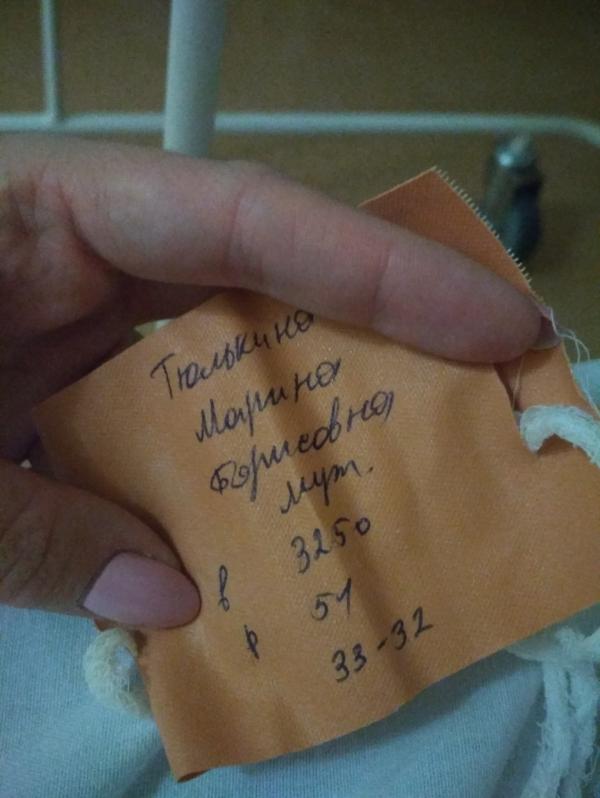 Тюлькина
Марина
Борисовна
муж.
в 3250
р 51
33-32